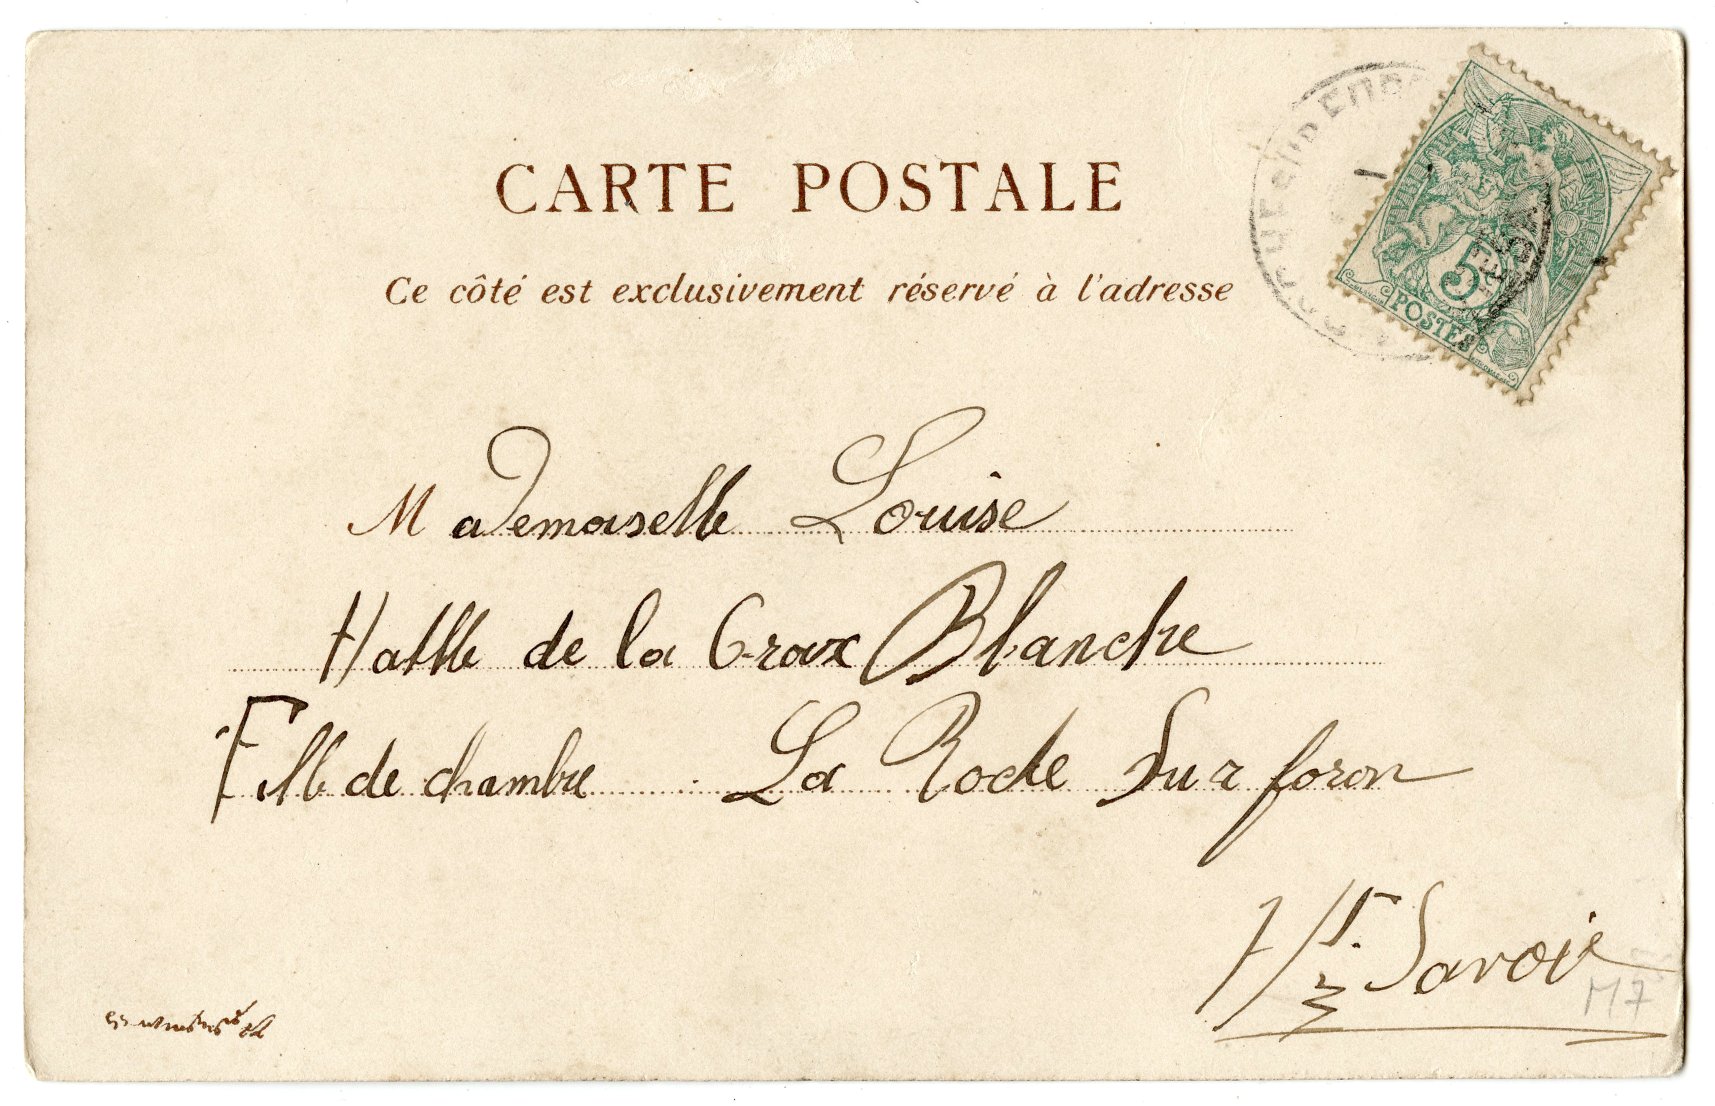 CARTE POSTALE
Ce côté est exclusivement réservé à l'adresse
5
POSTES
Mademoiselle Louise
Hattle de la Croix Blanche
Fille de chambre La Roche Sur foron
Hte Savoie
M7